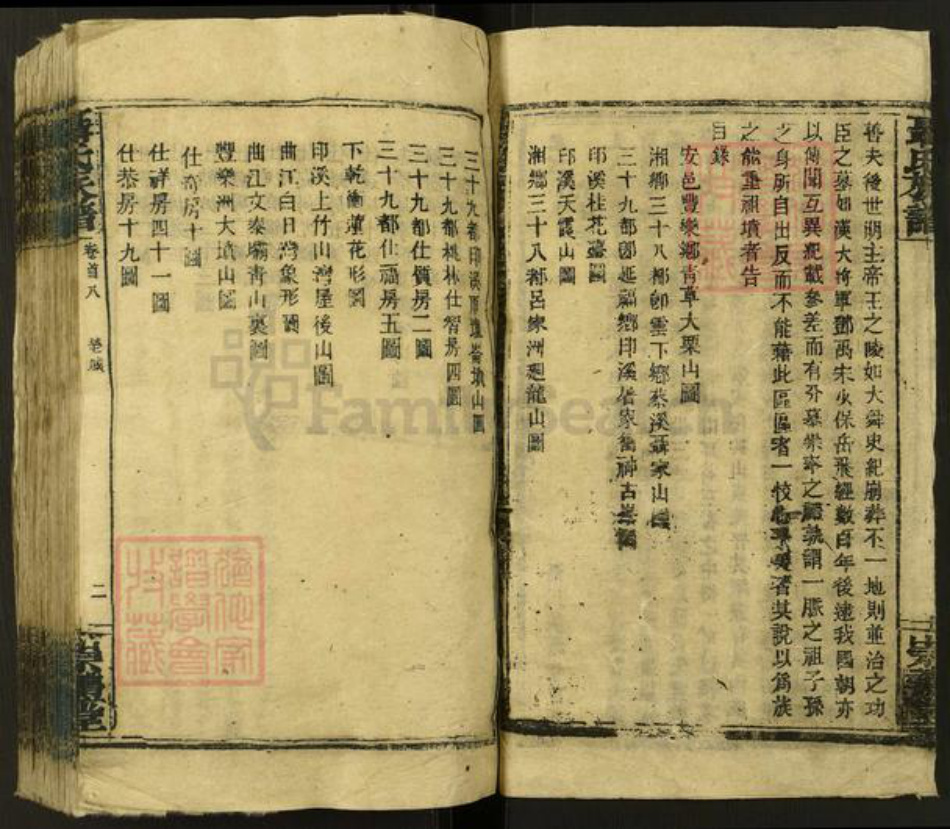 善夫後世明主帝王之陵如大舜史紀崩葬不一地則並治之功
臣之墓如漢大將軍鄧禹宋少保岳飛經數百年後逮我國朝亦
以傳聞互異紀載參差而有分墓崇奉之隆孰謂一脈之祖子孫
之身所自出反而不能藉此區區者一
者其說以為族
之能重祖墳者告
目錄
安邑豐樂鄉青草大栗山圖
湘鄉三十八都卽雲下鄉蔡溪聶家山圖
三十九都卽延福鄉印溪
神古
圖
印溪桂花臺圖
印溪天霞山圖
湘鄉三十八都呂家洲迴龍山圖
三十九都印溪
山圖
三十九都桃林仕智房四圖
三十九都仕質房二圖
三十九都仕福房五圖
下乾衝蓮花形圖
印溪上竹山灣屋後山圖
曲江白日灣象形圖
曲江文泰壩靑山裏圖
豐樂洲大墳山圖
仕奇房十圖
仕祥房四十一圖
仕恭房十九圖
卷首八
二
聶氏族譜
FamilySearch